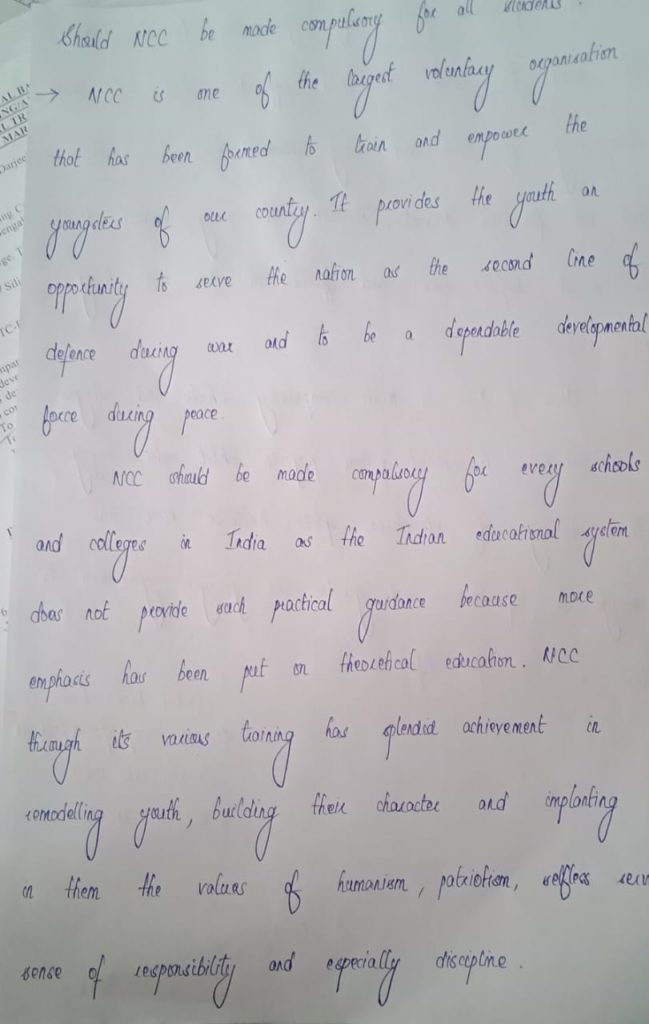 Should NCC be made compulsory for all students.
→ NCC is one of the largest voluntary organisation
that has been formed to train and empower the
youngsters of our country. It provides the youth an
opportunity to serve the nation as the second line of
defence during war and to be a dependable developmental
force during peace.
NCC should be made compulsory for every schools
and colleges in India as the Indian educational system
does not provide such practical guidance because more
emphasis has been put on theoretical education. NCC
through its various training has splendid achievement in
remodelling youth, building their character and implanting
in them the values of humanism, patriotism, selfless serv
sense of responsibility and especially discipline.